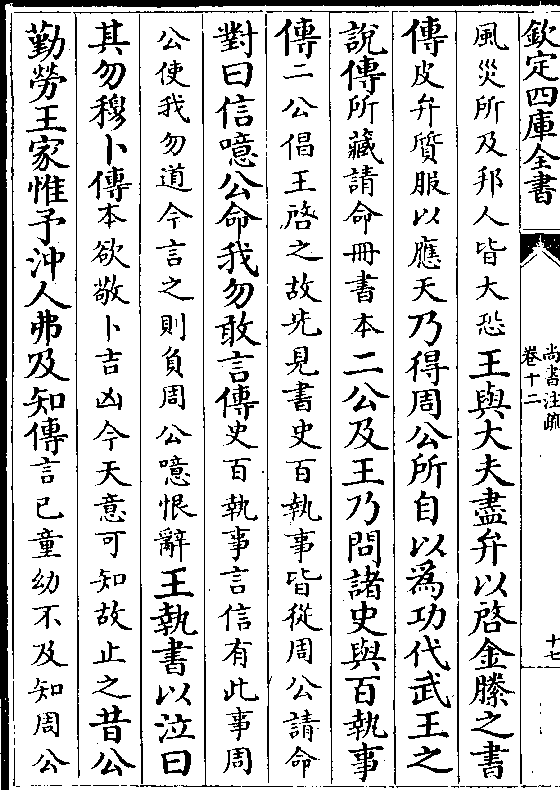 欽定四庫全書
尚書注疏
卷十二
十七
風災所及邦人皆大恐王與大夫盡弁以啓金縢之書
傳皮弁質服以應天乃得周公所自以為功代武王之
說傳所藏請命冊書本二公及王乃問諸史與百執事
傳二公倡王啓之故先見書史百執事皆從周公請命
對曰信噫公命我勿敢言傳史百執事言信有此事周
公使我勿道今言之則負周公噫恨辭王執書以泣曰
其勿穆卜傳本欲敬卜吉凶今天意可知故止之昔公
勤勞王家惟予沖人弗及知傳言已童幼不及知周公